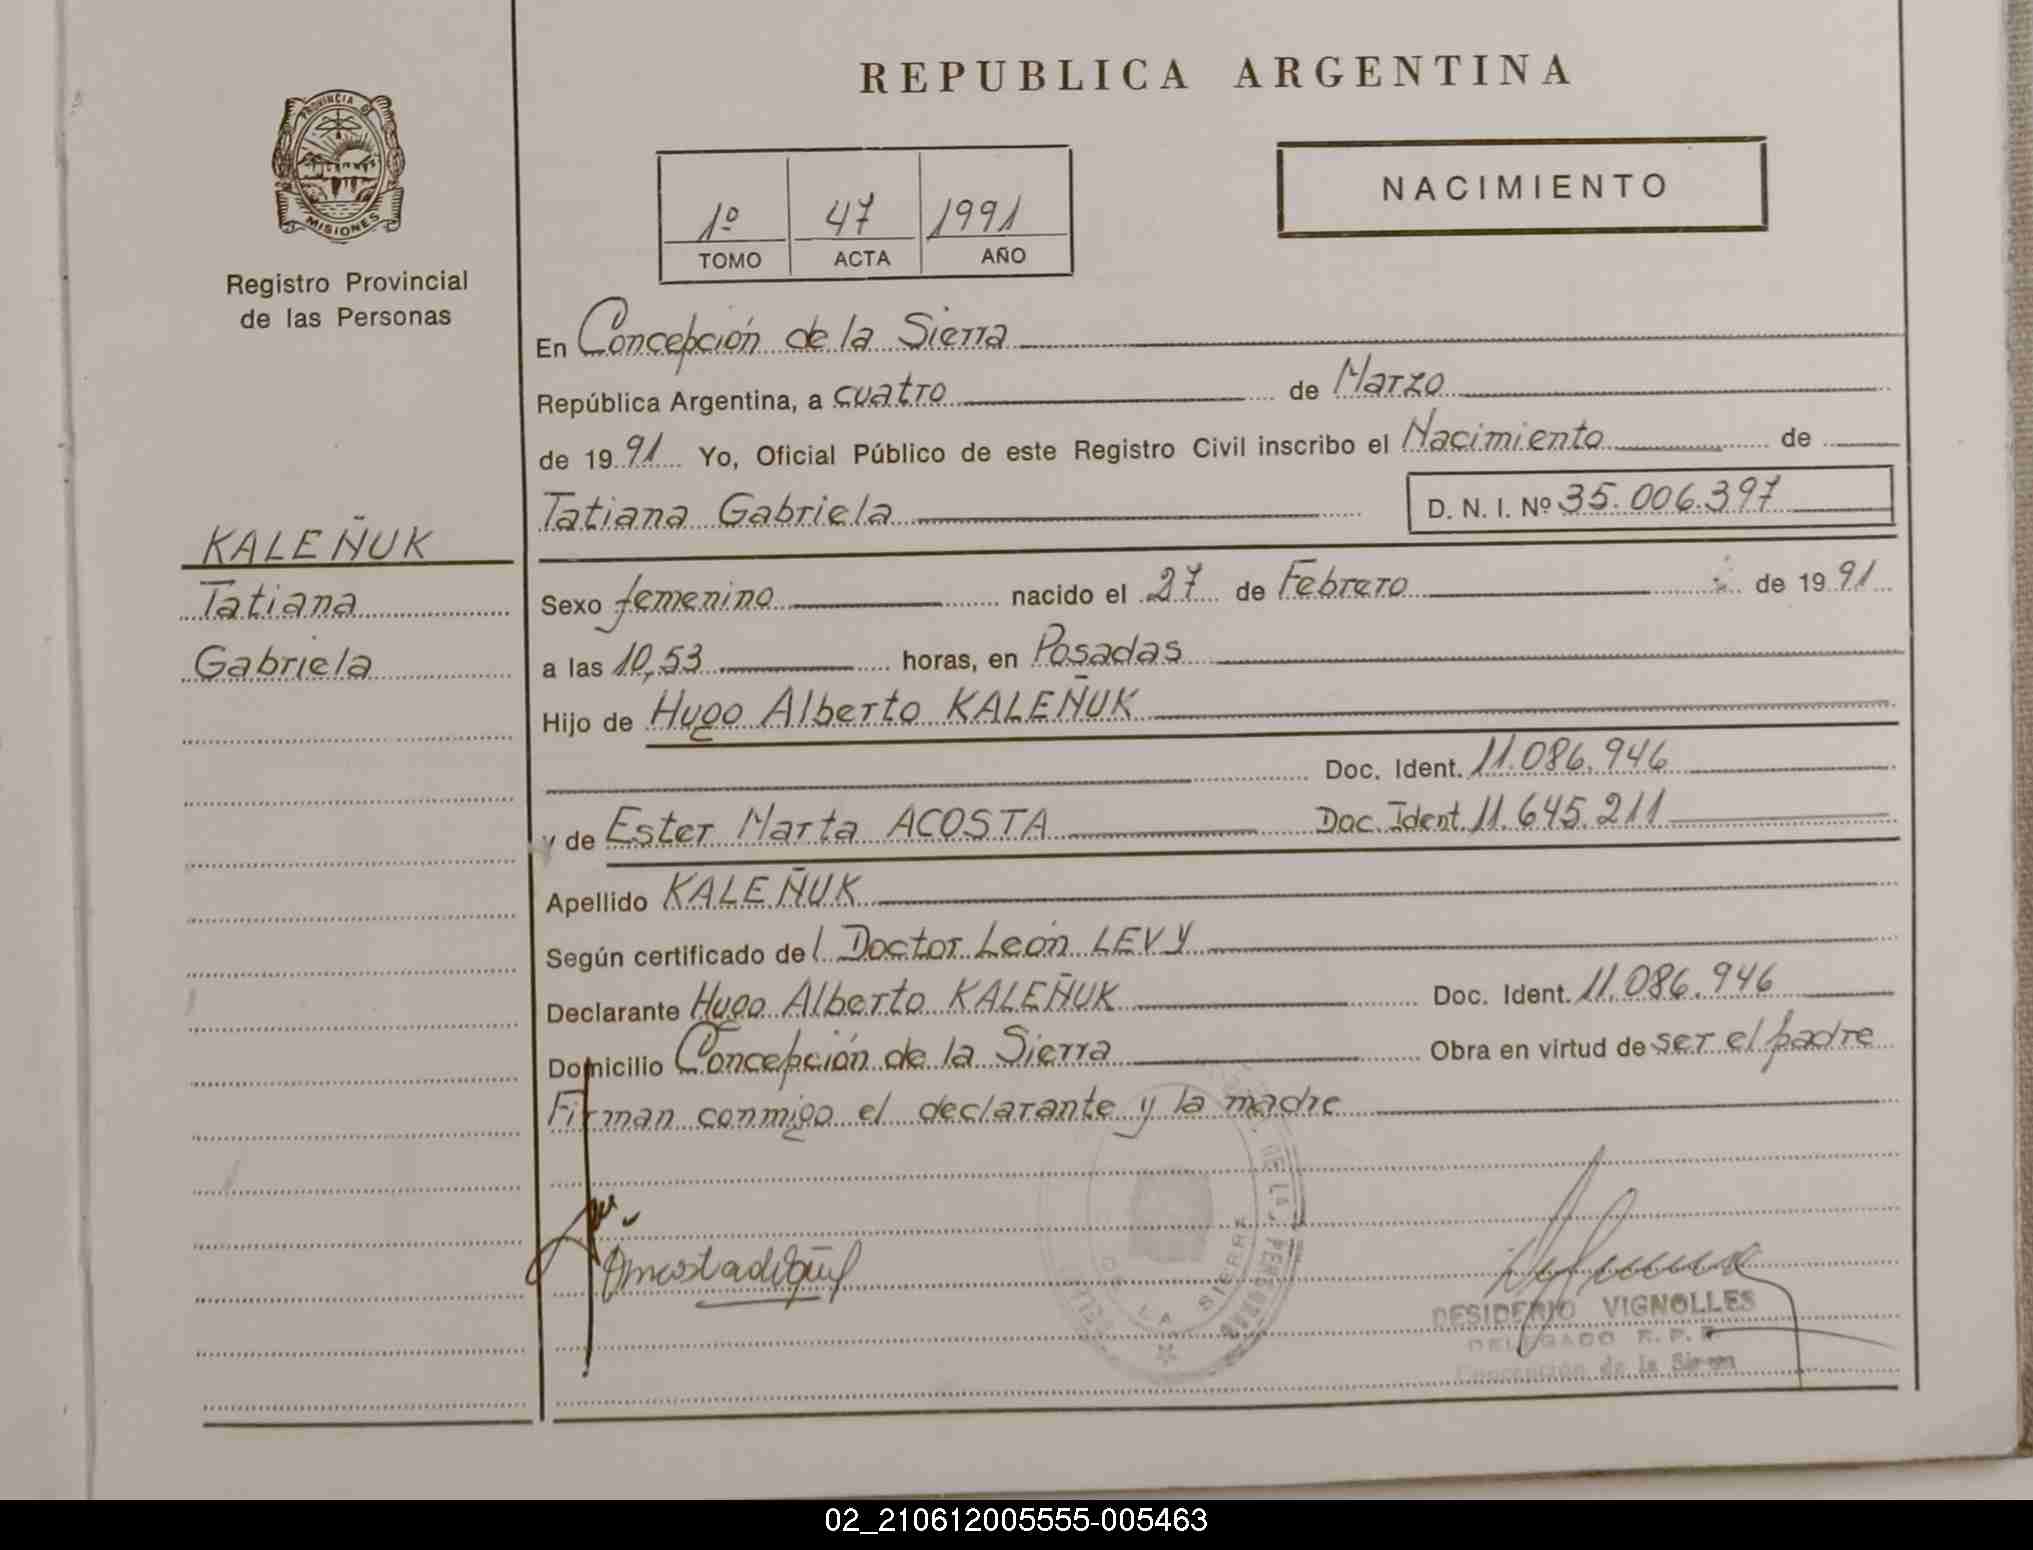 REPUBLICA ARGENTINA
PROVINCIA DE
MISIONES
Registro Provincial
de las Personas
1º 47 1991
TOMO ACTA AÑO
NACIMIENTO
En Concepción de la Sierra
República Argentina, a cuatro de Marzo
de 1991 Yo, Oficial Público de este Registro Civil inscribo el Nacimiento de
Tatiana Gabriela D. N. I. Nº 35.006.397
KALEÑUK
Tatiana
Gabriela
Sexo femenino nacido el 27 de Febrero de 1991
a las 10,53 horas, en Posadas
Hijo de Hugo Alberto KALEÑUK
Doc. Ident. 11.086.946
y de Ester Marta ACOSTA Doc. Ident. 11.645.211
Apellido KALEÑUK
Según certificado del Doctor León LEVY
Declarante Hugo Alberto KALEÑUK Doc. Ident. 11.086.946
Domicilio Concepción de la Sierra Obra en virtud de ser el padre
Firman conmigo el declarante y la madre
DE LAS PERSONAS
DE LA SIERRA
DESIDERIO VIGNOLLES
DELEGADO R. P. P.
Concepción de la Sierra
02_210612005555-005463